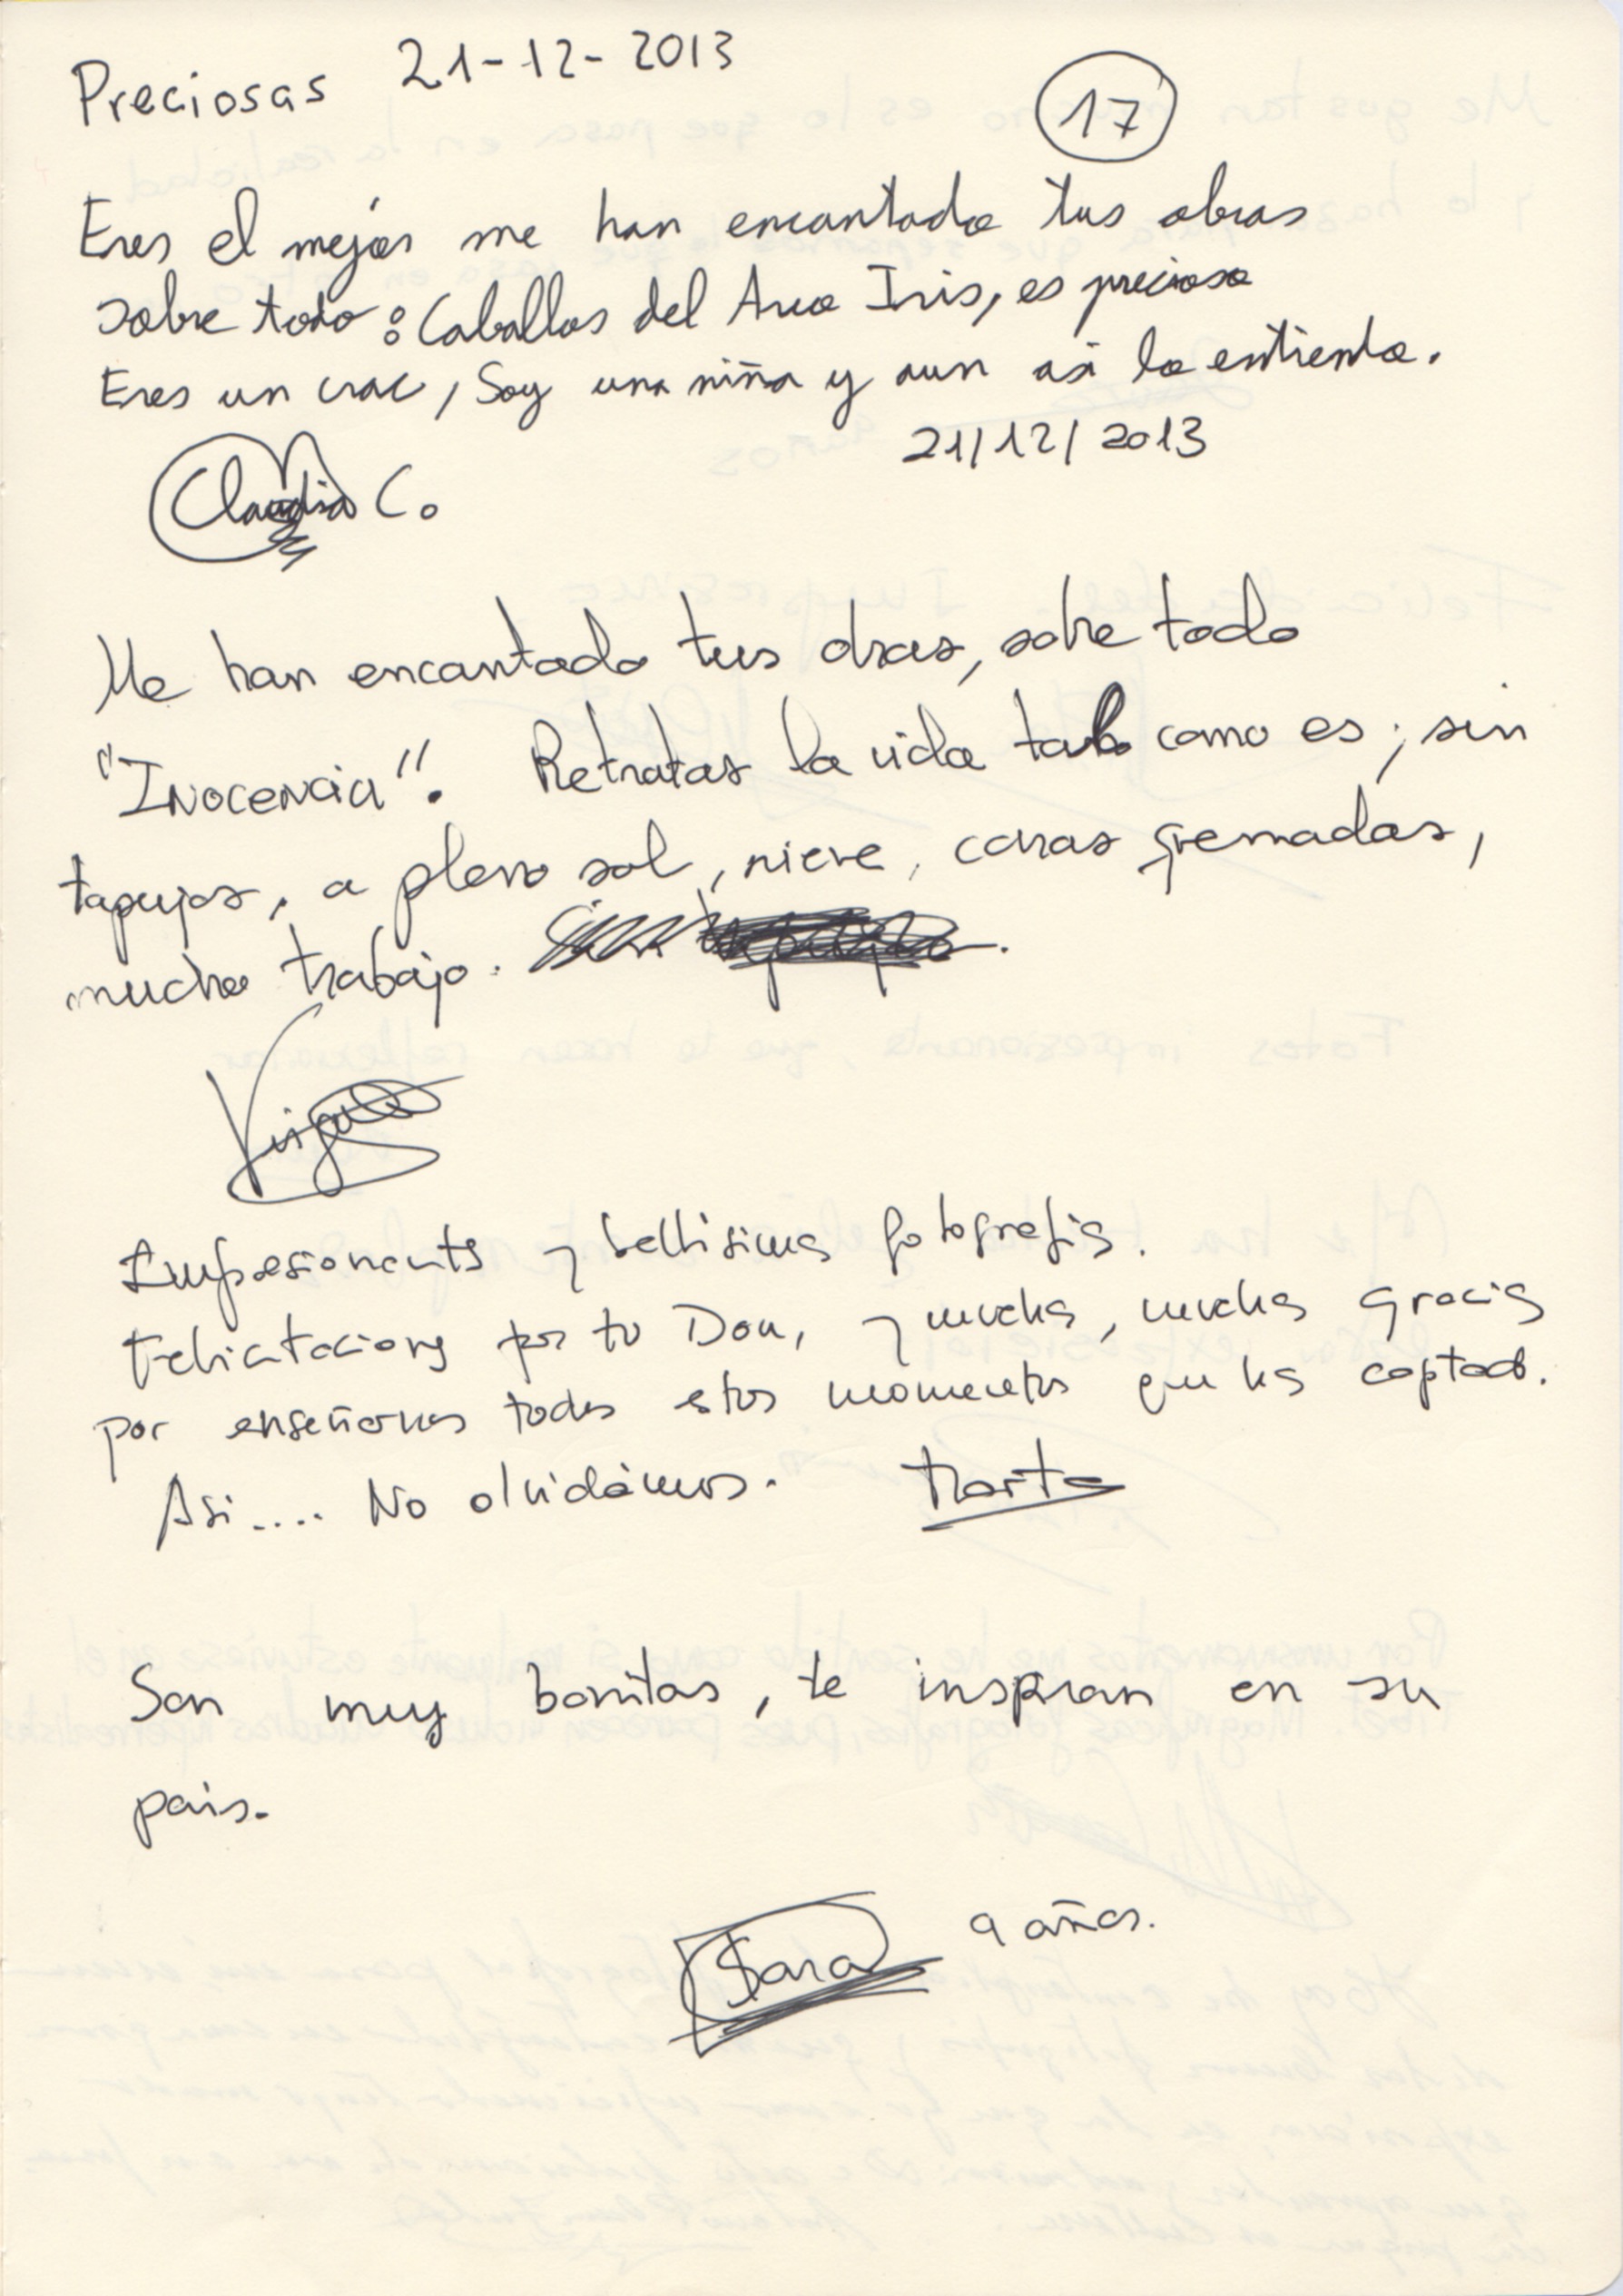 Preciosas 21-12-2013
17
Eres el mejor me han encantado tus obras
sobre todo: Caballos del Arco Iris, es precioso
Eres un crac, Soy una niña y aun asi lo entiendo.
21/12/2013
Claudia C.
Me han encantado tus obras, sobre todo
"Inocencia". Retratas la vida tal como es; sin
tapujos, a pleno sol, nieve, caras quemadas,
mucho trabajo.
Impresionants y bellisimas fotografias.
Felicitaciones por tu Don, y muchas, muchas gracias
por enseñarnos todos estos momentos que has captado.
Asi.... No olvidámos. Marta
Son muy bonitas, te inspiran en su
pais.
Sara 9 años.